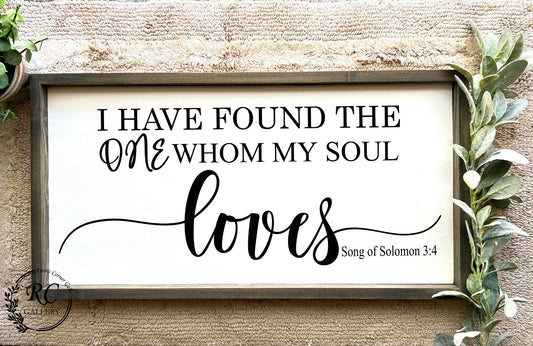 I HAVE FOUND THE
ONE WHOM MY SOUL
loves
Song of Solomon 3:4
Corner
RC
GALLERY